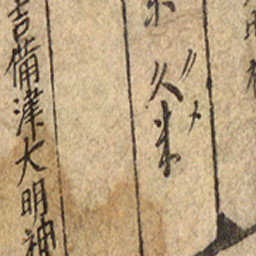 久米
クメ
吉備津大明神